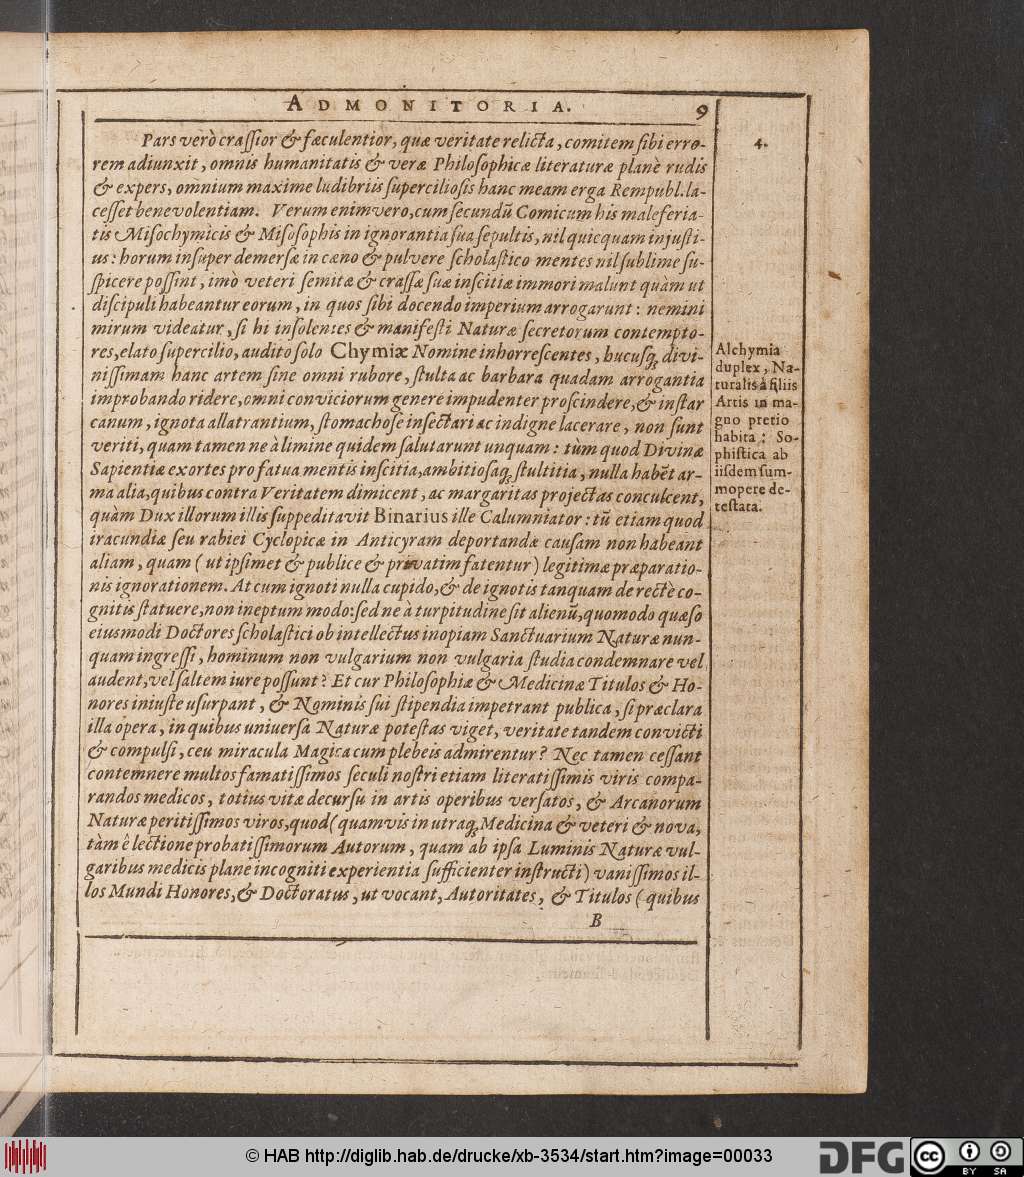 ADMONITORIA. 9
Pars verò craſſior & fæculentior, quæ veritate relicta, comitem ſibi erro-
rem adiunxit, omnis humanitatis & veræ Philoſophicæ literaturæ planè rudis
& expers, omnium maxime ludibriis ſuperciliosis hanc meam erga Rempubl. la-
ceſſet benevolentiam. Verum enimvero, cum ſecundũ Comicum his maleferia-
tis Miſochymicis & Miſoſophis in ignorantia ſua ſepultis, nil quicquam injuſti-
us: horum inſuper demerſæ in cæno & pulvere ſcholaſtico mentes nil ſublime ſu-
ſpicere poſſint, imò veteri ſemitæ & craſſæ ſuæ inſcitiæ immori malunt quàm ut
diſcipuli habeantur eorum, in quos ſibi docendo imperium arrogarunt: nemini
mirum videatur, ſi hi inſolentes & manifeſti Naturæ ſecretorum contempto-
res, elato ſupercilio, audito ſolo Chymiæ Nomine inhorreſcentes, hucuſq; divi-
niſſimam hanc artem ſine omni rubore, ſtulta ac barbara quadam arrogantia
improbando ridere, omni conviciorum genere impudenter proſcindere, & inſtar
canum, ignota allatrantium, ſtomachoſe inſectari ac indigne lacerare, non ſunt
veriti, quam tamen ne à limine quidem ſalutarunt unquam: tùm quod Divinæ
Sapientiæ exortes pro fatua mentis inſcitia, ambitioſaq; ſtultitia, nulla habẽt ar-
ma alia, quibus contra Veritatem dimicent, ac margaritas projectas conculcent,
quàm Dux illorum illis ſuppeditavit Binarius ille Calumniator: tũ etiam quod
iracundiæ ſeu rabiei Cyclopicæ in Anticyram deportandæ cauſam non habeant
aliam, quam (ut ipſimet & publice & privatim fatentur) legitimæ præparatio-
nis ignorationem. At cum ignoti nulla cupido, & de ignotis tanquam de rectè co-
gnitis ſtatuere, non ineptum modo: ſed ne à turpitudine ſit alienũ, quomodo quæſo
eiusmodi Doctores ſcholaſtici ob intellectus inopiam Sanctuarium Naturæ nun-
quam ingreſſi, hominum non vulgarium non vulgaria ſtudia condemnare vel
audent, vel ſaltem iure poſſunt? Et cur Philoſophiæ & Medicinæ Titulos & Ho-
nores iniuſte uſurpant, & Nominis ſui ſtipendia impetrant publica, ſi præclara
illa opera, in quibus univerſa Naturæ poteſtas viget, veritate tandem convicti
& compulſi, ceu miracula Magica cum plebeis admirentur? Nec tamen ceſſant
contemnere multos famatiſſimos ſeculi noſtri etiam literatiſſimis viris compa-
randos medicos, totius vitæ decurſu in artis operibus verſatos, & Arcanorum
Naturæ peritiſſimos viros, quod (quamvis in utraq; Medicina & veteri & nova,
tàm è lectione probatiſſimorum Autorum, quam ab ipſa Luminis Naturæ vul-
garibus medicis plane incogniti experientia ſufficienter inſtructi) vaniſſimos il-
los Mundi Honores, & Doctoratus, ut vocant, Autoritates, & Titulos (quibus
B
4.
Alchymia
duplex, Na-
turalis à filiis
Artis in ma-
gno pretio
habita: So-
phiſtica ab
iiſdem ſum-
mopere de-
teſtata.
© HAB http://diglib.hab.de/drucke/xb-3534/start.htm?image=00033
DFG
cc BY SA